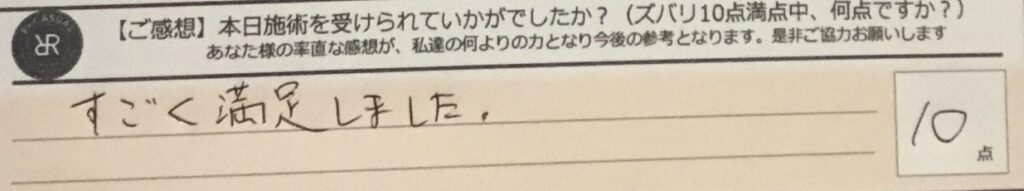 【ご感想】本日施術を受けられていかがでしたか？（ズバリ10点満点中、何点ですか？）
あなた様の率直な感想が、私達の何よりの力となり今後の参考となります。是非ご協力お願いします
すごく満足しました。
10
点